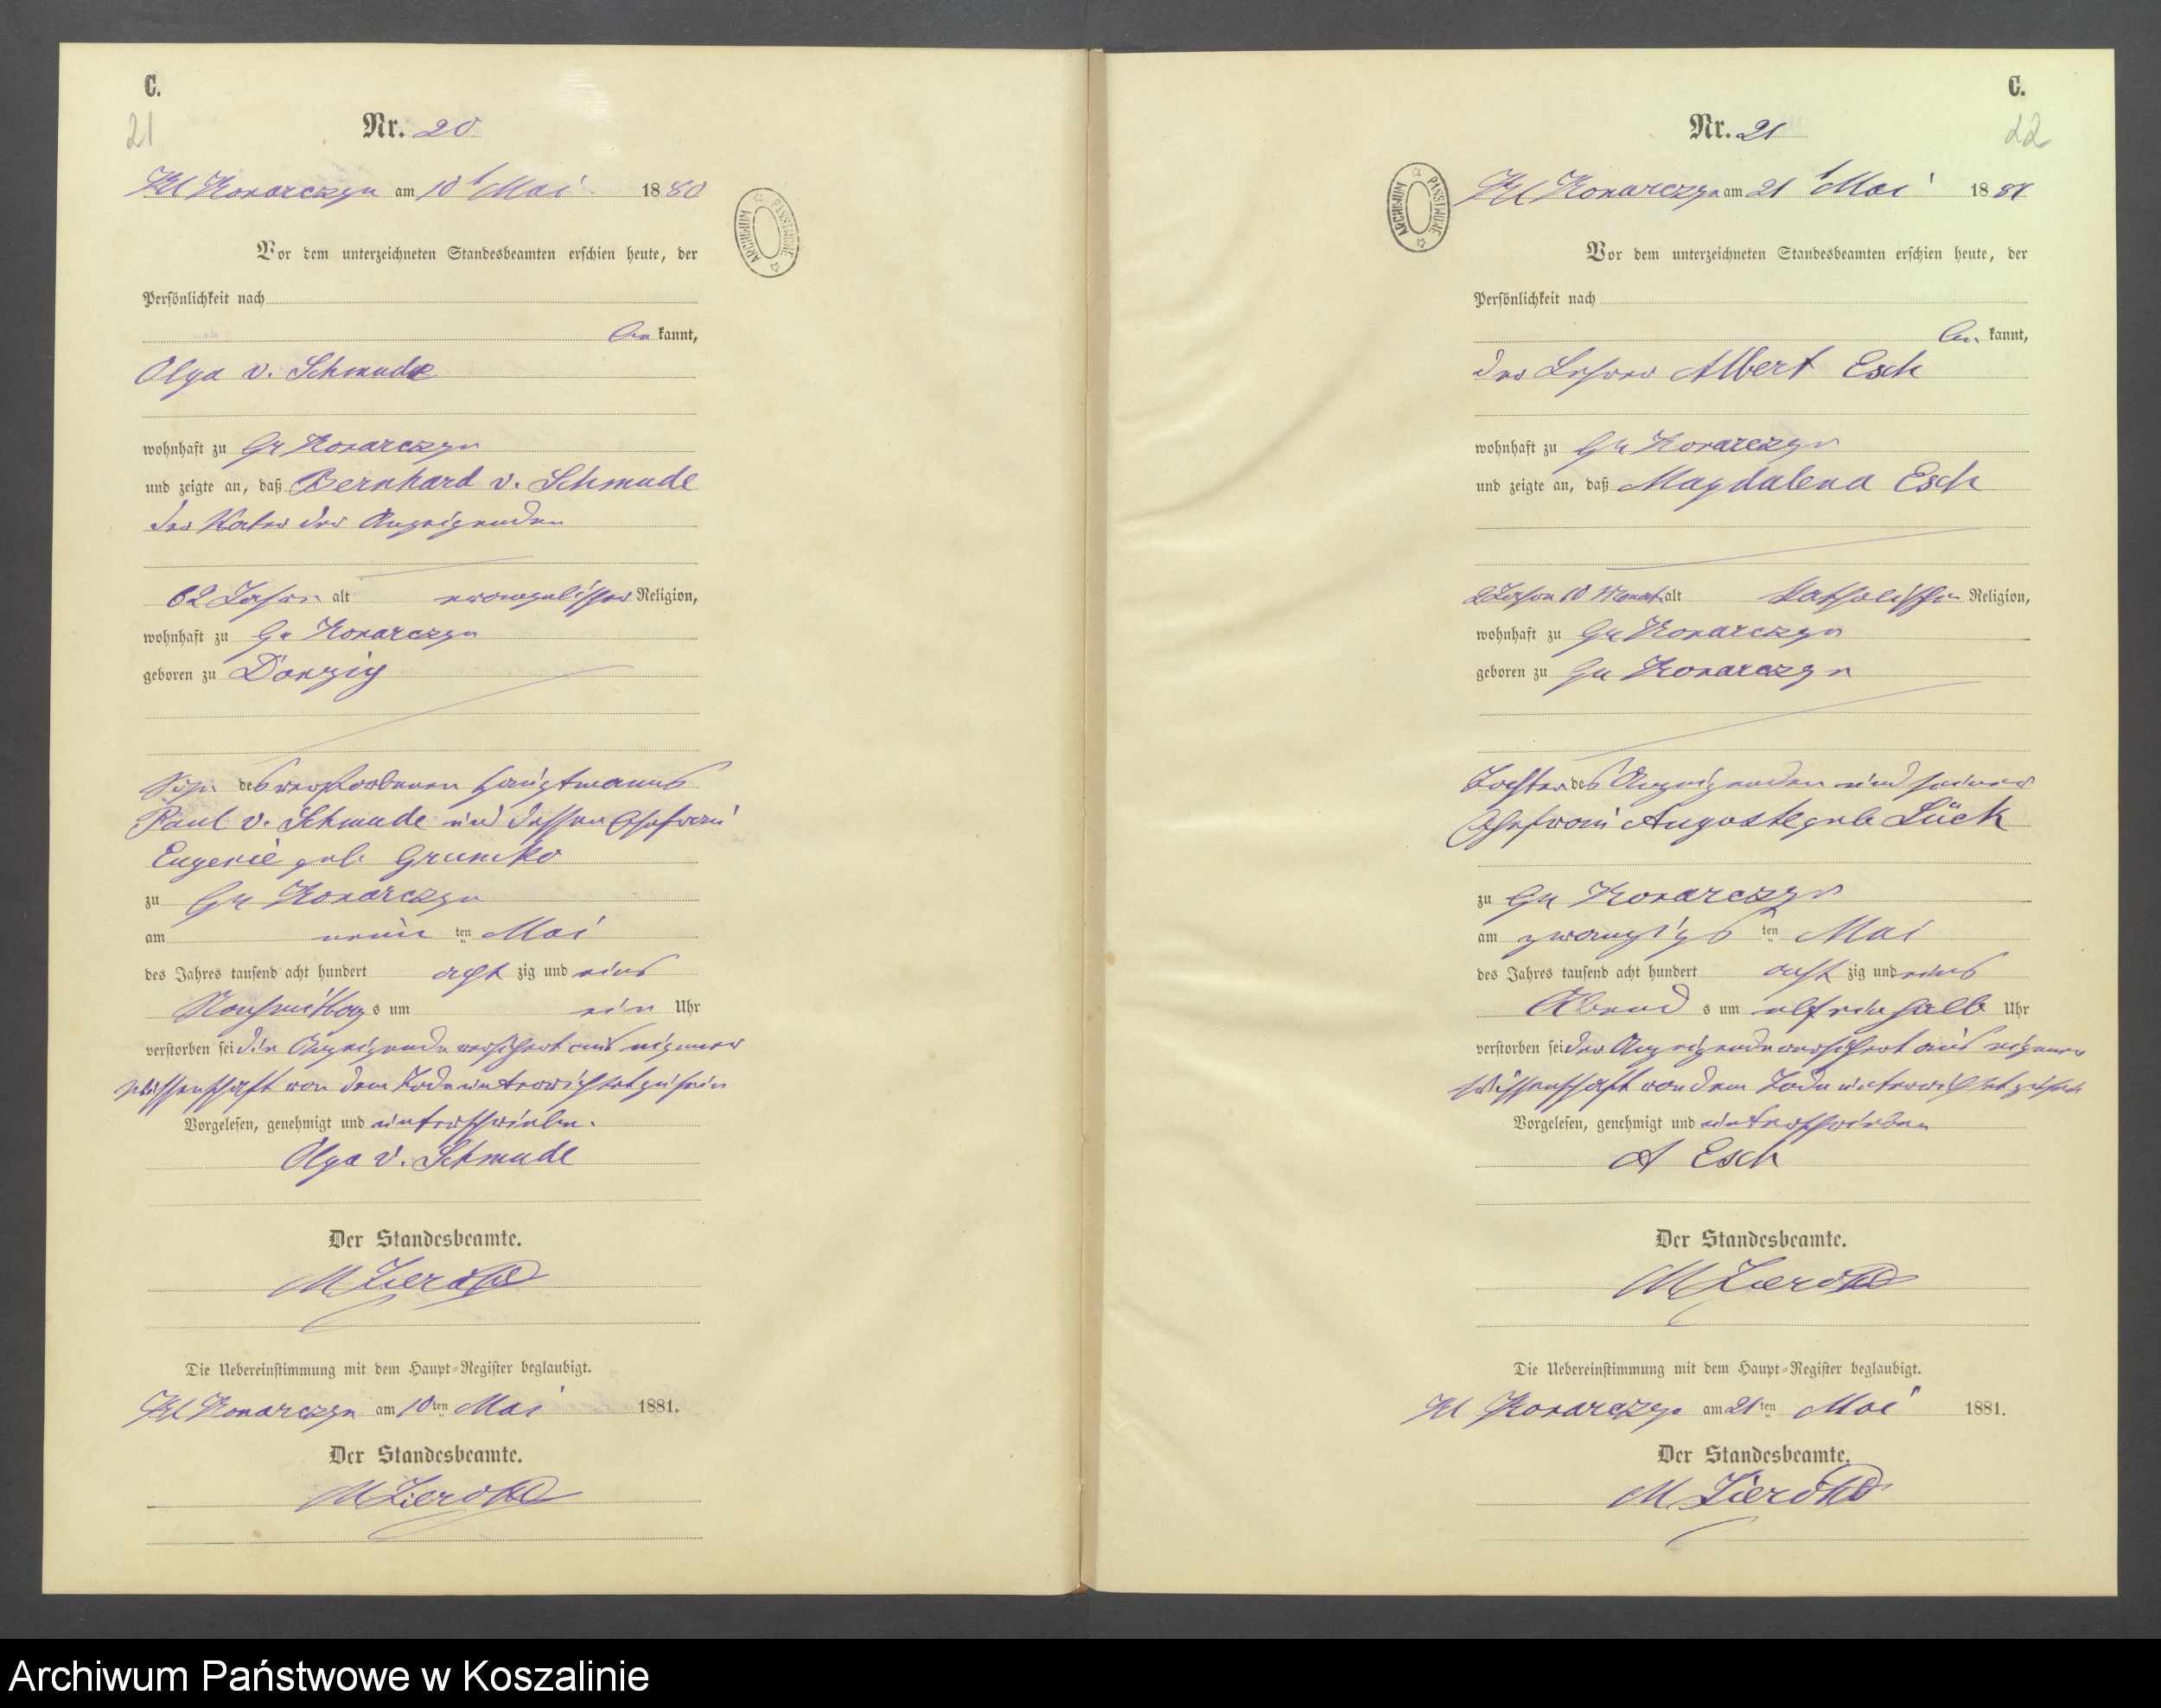 C.
21
Nr. 20
Kl Konarczyn am 10t Mai 1880
ARCHIWUM PAŃSTWOWE
Vor dem unterzeichneten Standesbeamten erschien heute, der
Persönlichkeit nach
be kannt,
Olga v. Schmude
wohnhaft zu Gr Konarczyn
und zeigte an, daß Bernhard v. Schmude
der Vater der Anzeigenden
62 Jahre alt evangelischer Religion,
wohnhaft zu Gr Konarczyn
geboren zu Danzig
Sohn des verstorbenen Hauptmanns
Paul v. Schmude und dessen Ehefrau
Eugenie geb.
zu Gr Konarczyn
am neun ten Mai
des Jahres tausend acht hundert acht zig und eins
Nachmittag s um ein Uhr
verstorben sei die Anzeigende versichert aus eigener
Wissenschaft von dem Tode unterrichtet zu sein
Vorgelesen, genehmigt und unterschrieben.
Olga v. Schmude
Der Standesbeamte.
M
Die Uebereinstimmung mit dem Haupt-Register beglaubigt.
Kl Konarczyn am 10ten Mai 1881.
Der Standesbeamte.
M
C.
22
Nr. 21
Kl Konarczyn am 21t Mai 1881
ARCHIWUM PAŃSTWOWE
Vor dem unterzeichneten Standesbeamten erschien heute, der
Persönlichkeit nach
be kannt,
der Lehrer Albert Esch
wohnhaft zu Gr Konarczyn
und zeigte an, daß Magdalena Esch
2 Jahre 10 Monat alt katholischer Religion,
wohnhaft zu Gr Konarczyn
geboren zu Gr Konarczyn
Tochter des Anzeigenden und seiner
Ehefrau Auguste geb Lück
zu Gr Konarczyn
am zwanzigs ten Mai
des Jahres tausend acht hundert acht zig und eins
Abend s um elfeinhalb Uhr
verstorben sei der Anzeigende versichert aus eigener
Wissenschaft von dem Tode unterrichtet zu sein
Vorgelesen, genehmigt und unterschrieben
A Esch
Der Standesbeamte.
M
Die Uebereinstimmung mit dem Haupt-Register beglaubigt.
Kl Konarczyn am 21ten Mai 1881.
Der Standesbeamte.
M
Archiwum Państwowe w Koszalinie